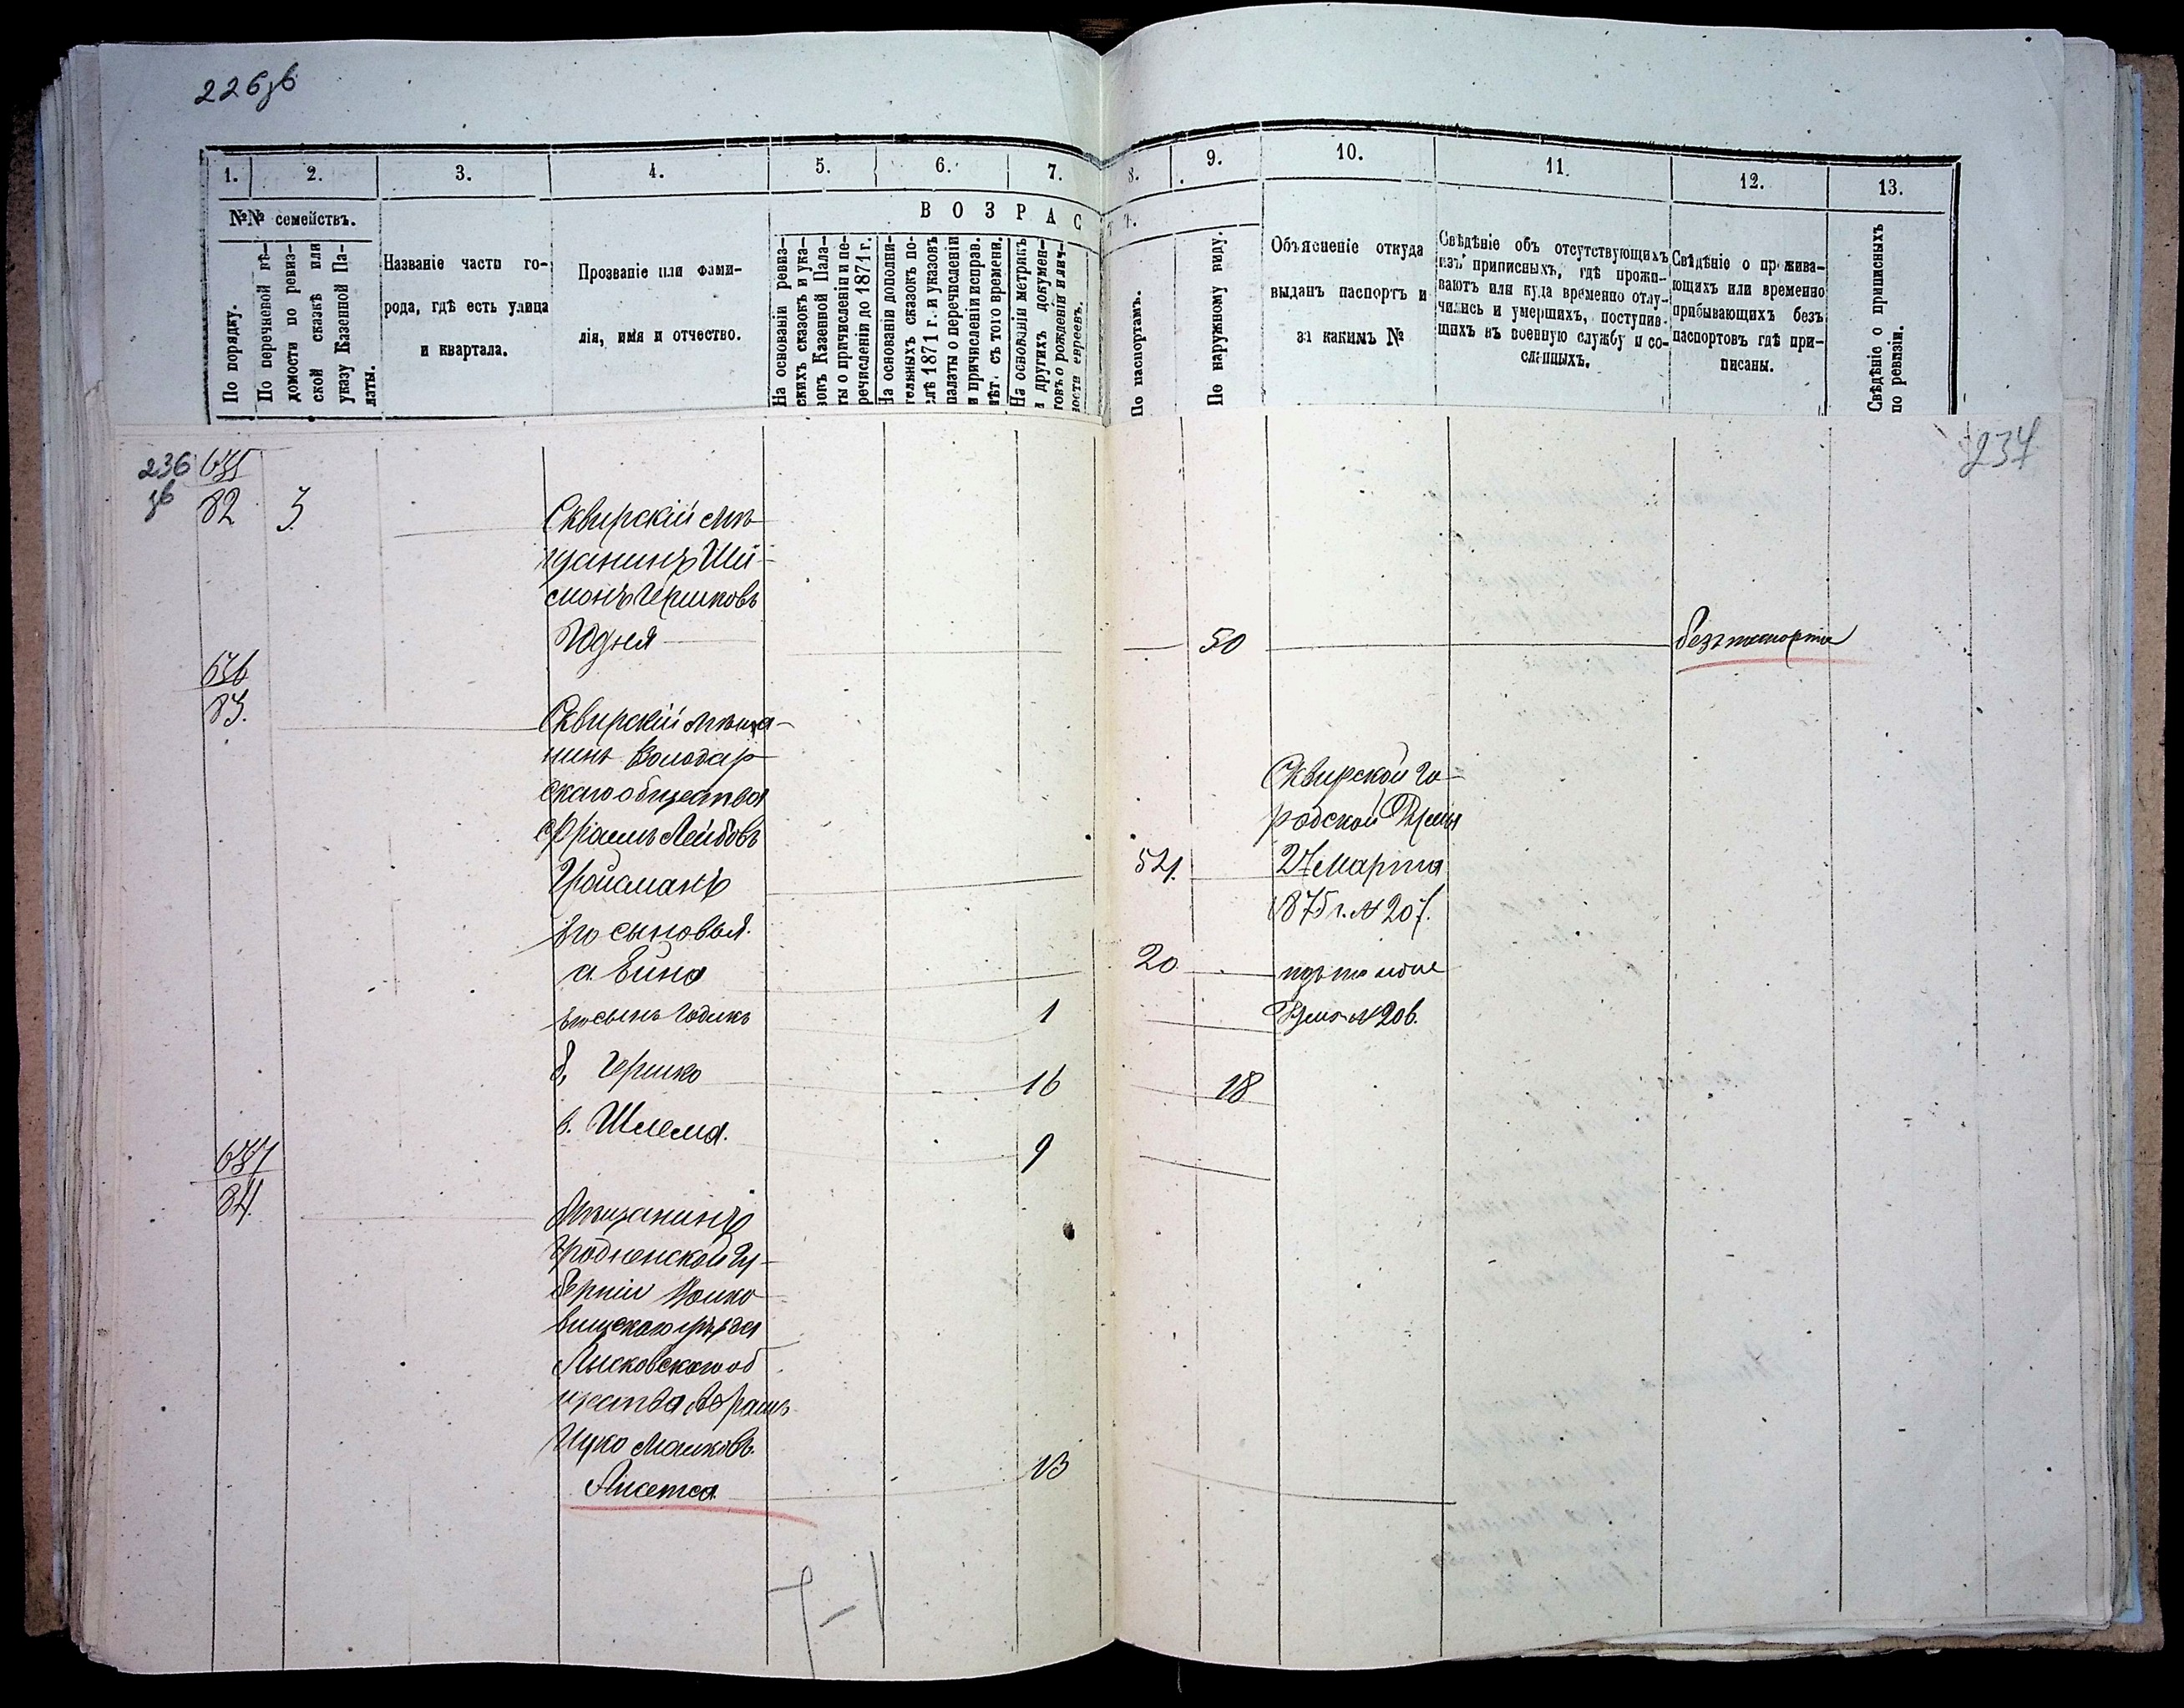 226зв
1. 2. 3. 4. 5. 6. 7. 8. 9. 10. 11. 12. 13.
№№ семействъ.
ВОЗРАС Т Ъ.
По порядку.
По перечневой вѣ-
домости по ревиз-
ской сказкѣ или
указу Казенной Па-
латы.
Названіе части го-
рода, гдѣ есть улица
и квартала.
Прозваніе или фами-
лія, имя и отчество.
На основаніи ревиз-
скихъ сказокъ и ука-
зовъ Казенной Пала-
ты о причисленіи и пе-
речисленіи до 1871 г.
На основаніи дополни-
тельныхъ сказокъ по-
слѣ 1871 г. и указовъ
палаты о перечисленіи
и причисленіи исправ.
лѣт. съ того времени.
На основаніи метрикъ
и другихъ докумен-
товъ о рожденіи и лич-
ности евреевъ.
По паспортамъ.
По наружному виду.
Объясненіе откуда
выданъ паспортъ и
за какимъ №
Свѣдѣніе объ отсутствующихъ
изъ приписныхъ, гдѣ прожи-
ваютъ или куда временно отлу-
чились и умершихъ, поступив-
шихъ въ военную службу и со-
сланныхъ.
Свѣдѣніе о прожива-
ющихъ или временно
прибывающихъ безъ
паспортовъ гдѣ при-
писаны.
Свѣдѣніе о приписныхъ
по ревизіи.
236 635 234
зв 82 3
Сквирскій мѣ-
щанинъ Ши-
монъ Гершковъ
50 безъ паспорта
636
83.
Сквирскій мѣща-
нинъ Володар-
скаго общества
Сквирской Го-
Лейбовъ
родской Думы
Гройсманъ 54. 24 Марта
1875 г. № 207.
Его сыновья.
а. 20.
Его сынъ 1 № 206.
б, Гершко 16 18
в. Шлема. 9
637
84.
Мѣщанинъ
Гродненской Гу-
берніи Волко-
вишскаго уѣзда
Лысковскаго об
щества Абрамъ
Ицко Мошковъ.
13
7-1